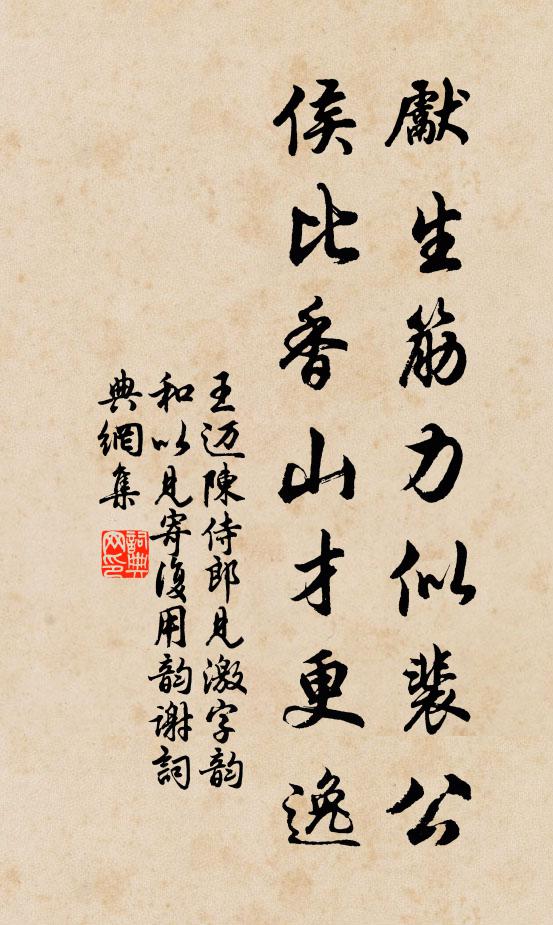 獻生筋力似裴公
侯比香山才更逸
王迈陳侍郎見激字韵
和以見寄復用韵謝詞
典網集
詞典
网印